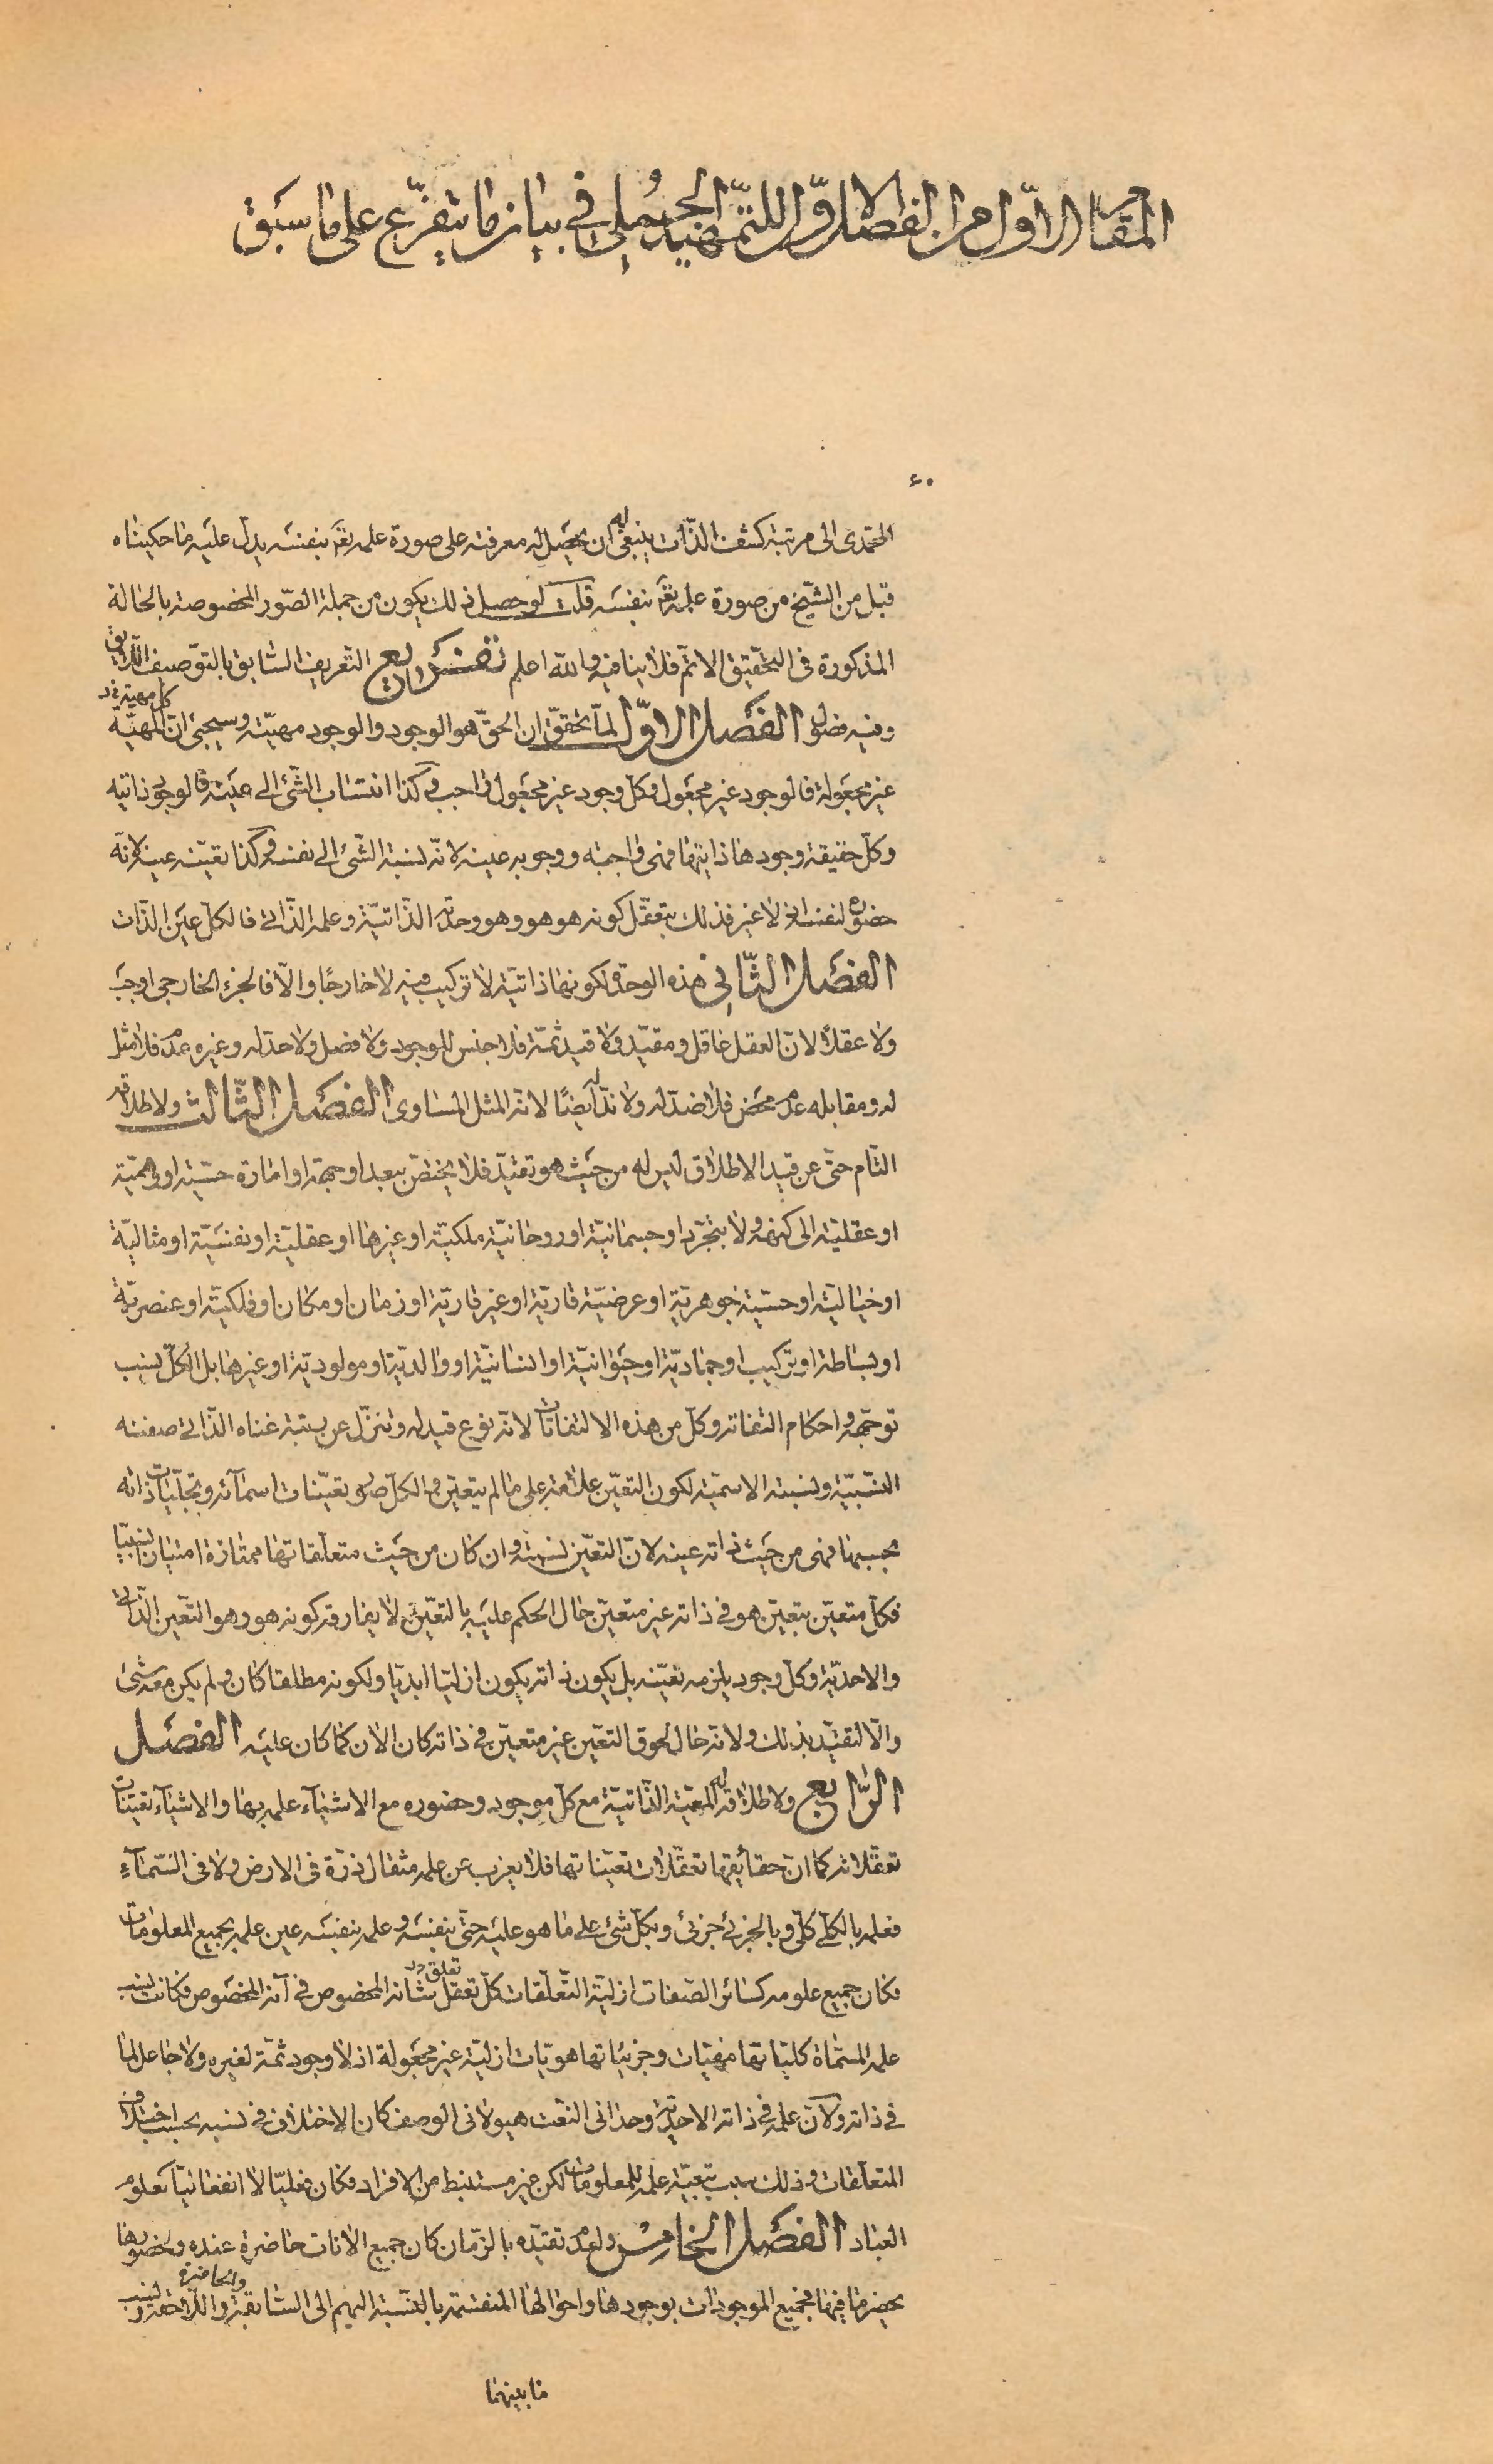 المقام الاوّل من الفصل الاوّل للتمهيد الجُملي في بيان ما يتفرّع على ما سبق
٤٠
المحمدى الى مرتبة كشف الذّات ينبغى له ان يحصل له معرفته على صورة علمه تعَ بنفسه يدل عليه ما حكيناه
قبل من الشيخ من صورة علمه تعَ بنفسه قلت لو حصل ذلك يكون من جملة الصّور المخصوصة بالحالة
المذكورة فى التحقيق الاتم فلا ينافيه والله اعلم تفريع التعريف السّابق بالتوصيف اللّايق
وفيه فصول الفصل الاوّل لما تحقّق ان الحقّ هو الوجود والوجود مهيّته وسيجئ انّ كل مهيّة
غير مجعولة فالوجود غير مجعول وكلّ وجود غير مجعول واجب وكذا انتساب الشّئ الى عينه فالوجوب ذاتيه
وكلّ حقيقة وجودها ذاتيّها فهى واجبة ووجوبه عينه لانّه نسبة الشّئ الى نفسه وكذا تعيّنه عينه لانّه
حضوره لنفسه لا غير فذلك بتعقّل كونه هو هو وهو وحدته الذّاتيّة وعلمه الذّاتى فالكلّ عين الذّات
الفصل الثّانى هذه الوحدة لكونها ذاتيّة لا تركيب فيه لا خارجًا والّا فالجزء الخارجى اوجب
ولا عقلًا لانّ العقل عاقل ومقيّد ولا قيد ثمّة فلا جنس للوجود ولا فصل ولا حدّ له وغيره عدم فلا مثل
له ومقابله عدم محض فلا ضدّ له ولا ندّ له ايضًا لانّه المثل المساوى الفصل الثّالث ولاطلاقه
التام حتّى عن قيد الاطلاق ليس له من حيث هو تقيّد فلا يختصّ ببعد او جهة او امارة حسّيّة او وهميّة
او عقليّة الى كنهه ولا بتجرّد او جسمانيّة او روحانيّة ملكيّة او غيرها او عقليّة او نفسيّة او مثاليّة
او خياليّة او حسّيّة جوهريّة او عرضيّة قاريّة او غير قاريّة او زمان او مكان او فلكيّة او عنصريّة
او بساطة او تركيب او جماديّة او حيوانيّة او انسانيّة او والديّة او مولوديّة او غيرها بل الكلّ نسب
توجّهه واحكام التفاته وكلّ من هذه الالتفاتات لانّه نوع قيد له وتنزّل عن رتبة غناه الذّاتى صفته
النّسبيّة ونسبته الاسميّة لكون التعيّن علامة على ما لم يتعيّن والكلّ صور تعيّنات اسمآئه وتجلّيات ذاته
بحسبها فهى من حيث ذاته عينه لانّ التعيّن نسبة وان كان من حيث متعلّقاتها ممتازة امتيازا نسبيّا
فكلّ متعيّن بتعيّن هو فى ذاته غير متعيّن حال الحكم عليه بالتعيّن لا يفارقه كونه هو وهو التّعين الذّاتى
والاحديّة وكلّ وجود يلزمه تعيّنه بل يكون ذاته يكون ازليّا ابديّا ولكونه مطلقا كان ولم يكن معه شئ
والّا لتقيّد بذلك ولانّه حال لحوق التعيّن غير متعيّن فى ذاته كان الآن كما كان عليه الفصل
الرّابع ولاطلاقه له المعيّة الذّاتيّة مع كلّ موجود وحضوره مع الاشيآء علمه بها والاشيآء تعيّنات
تعقّلاته كما انّ حقائقها تعقّلات تعيّناتها فلا يعزب عن علمه مثقال ذرّة فى الارض ولا فى السّمآء
فعلمه بالكلّى كلّى وبالجزئى جزئى وبكلّ شئ على ما هو عليه حتّى بنفسه وعلمه بنفسه عين علمه بجميع المعلومات
فكان جميع علومه كسائر الصّفات ازليّة التّعلّقات كلّ تعقّل تعلّق بشأنه المخصوص فى آنه المخصوص فكانت نسب
علمه المسمّاة كليّاتها مهيّات وجزئيّاتها هويّات ازليّة غير مجعولة اذ لا وجود ثمّة لغيره ولا جاعل لما
فى ذاته ولانّ علمه فى ذاته الاحديّة وحدانى النّعت هيولانى الوصف كان الاختلاف فى نسبه بحسب اختلاف
المتعلّقات وذلك سبب تبعيّة علمه للمعلومات لكن غير مستنبط من الافراد فكان فعليّا لا انفعاليّا كعلوم
العباد الفصل الخامس ولعدم تقيّده بالزّمان كان جميع الآنات حاضرة عنده وبحضورها
يحضر ما فيها فجميع الموجودات بوجودها واحوالها المنقسمة بالنّسبة اليهم الى السّابقة واللّاحقة والحاضرة ونسب
ما بينهما